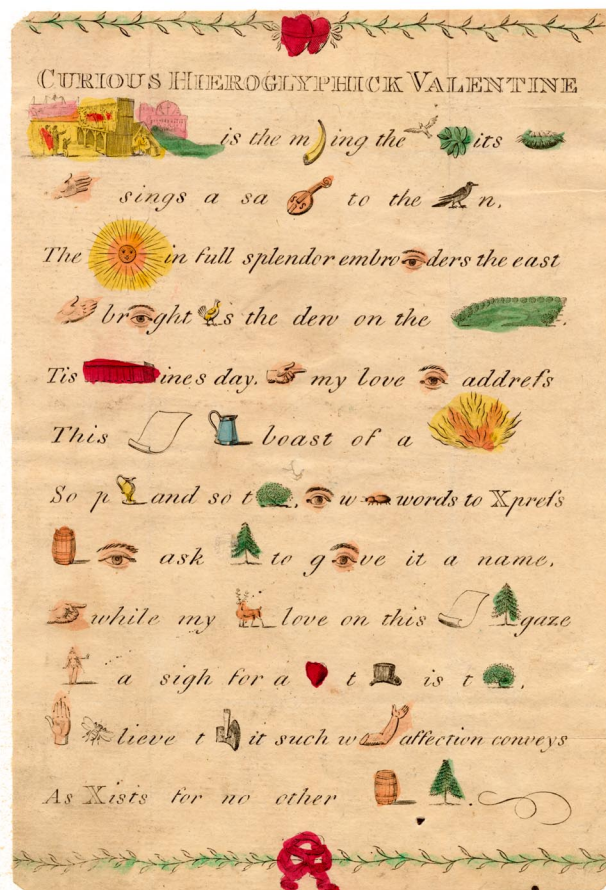 CURIOUS HIEROGLYPHICK VALENTINE
is the m ing the its
sings a sa to the n,
The in full splendor embro ders the east
br ght s the dew on the .
Tis ines day. my love addreſs
This boast of a
So p and so t , w words to Xpreſs
ask to g ve it a name,
while my love on this gaze
a sigh for a t is t ,
lieve t it such w affection conveys
As Xists for no other .